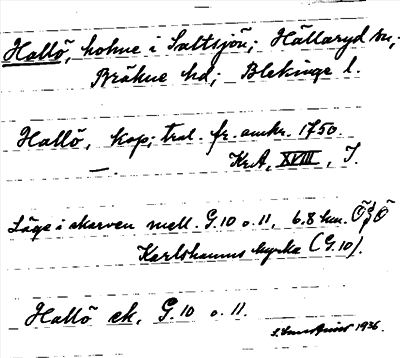 Hallö, holme i Saltsjön; Hällaryd sn;
Bräkne hd; Blekinge l.
Hallö, kop; tral. fr. omkr. 1750.
— . KrA, XVIII, I.
Läge i skarven mell. G.10 o. 11, 6.8 km. Ö} Ö
Karlshamns kyrka (G.10).
Hallö ek, G.10 o. 11.
1936